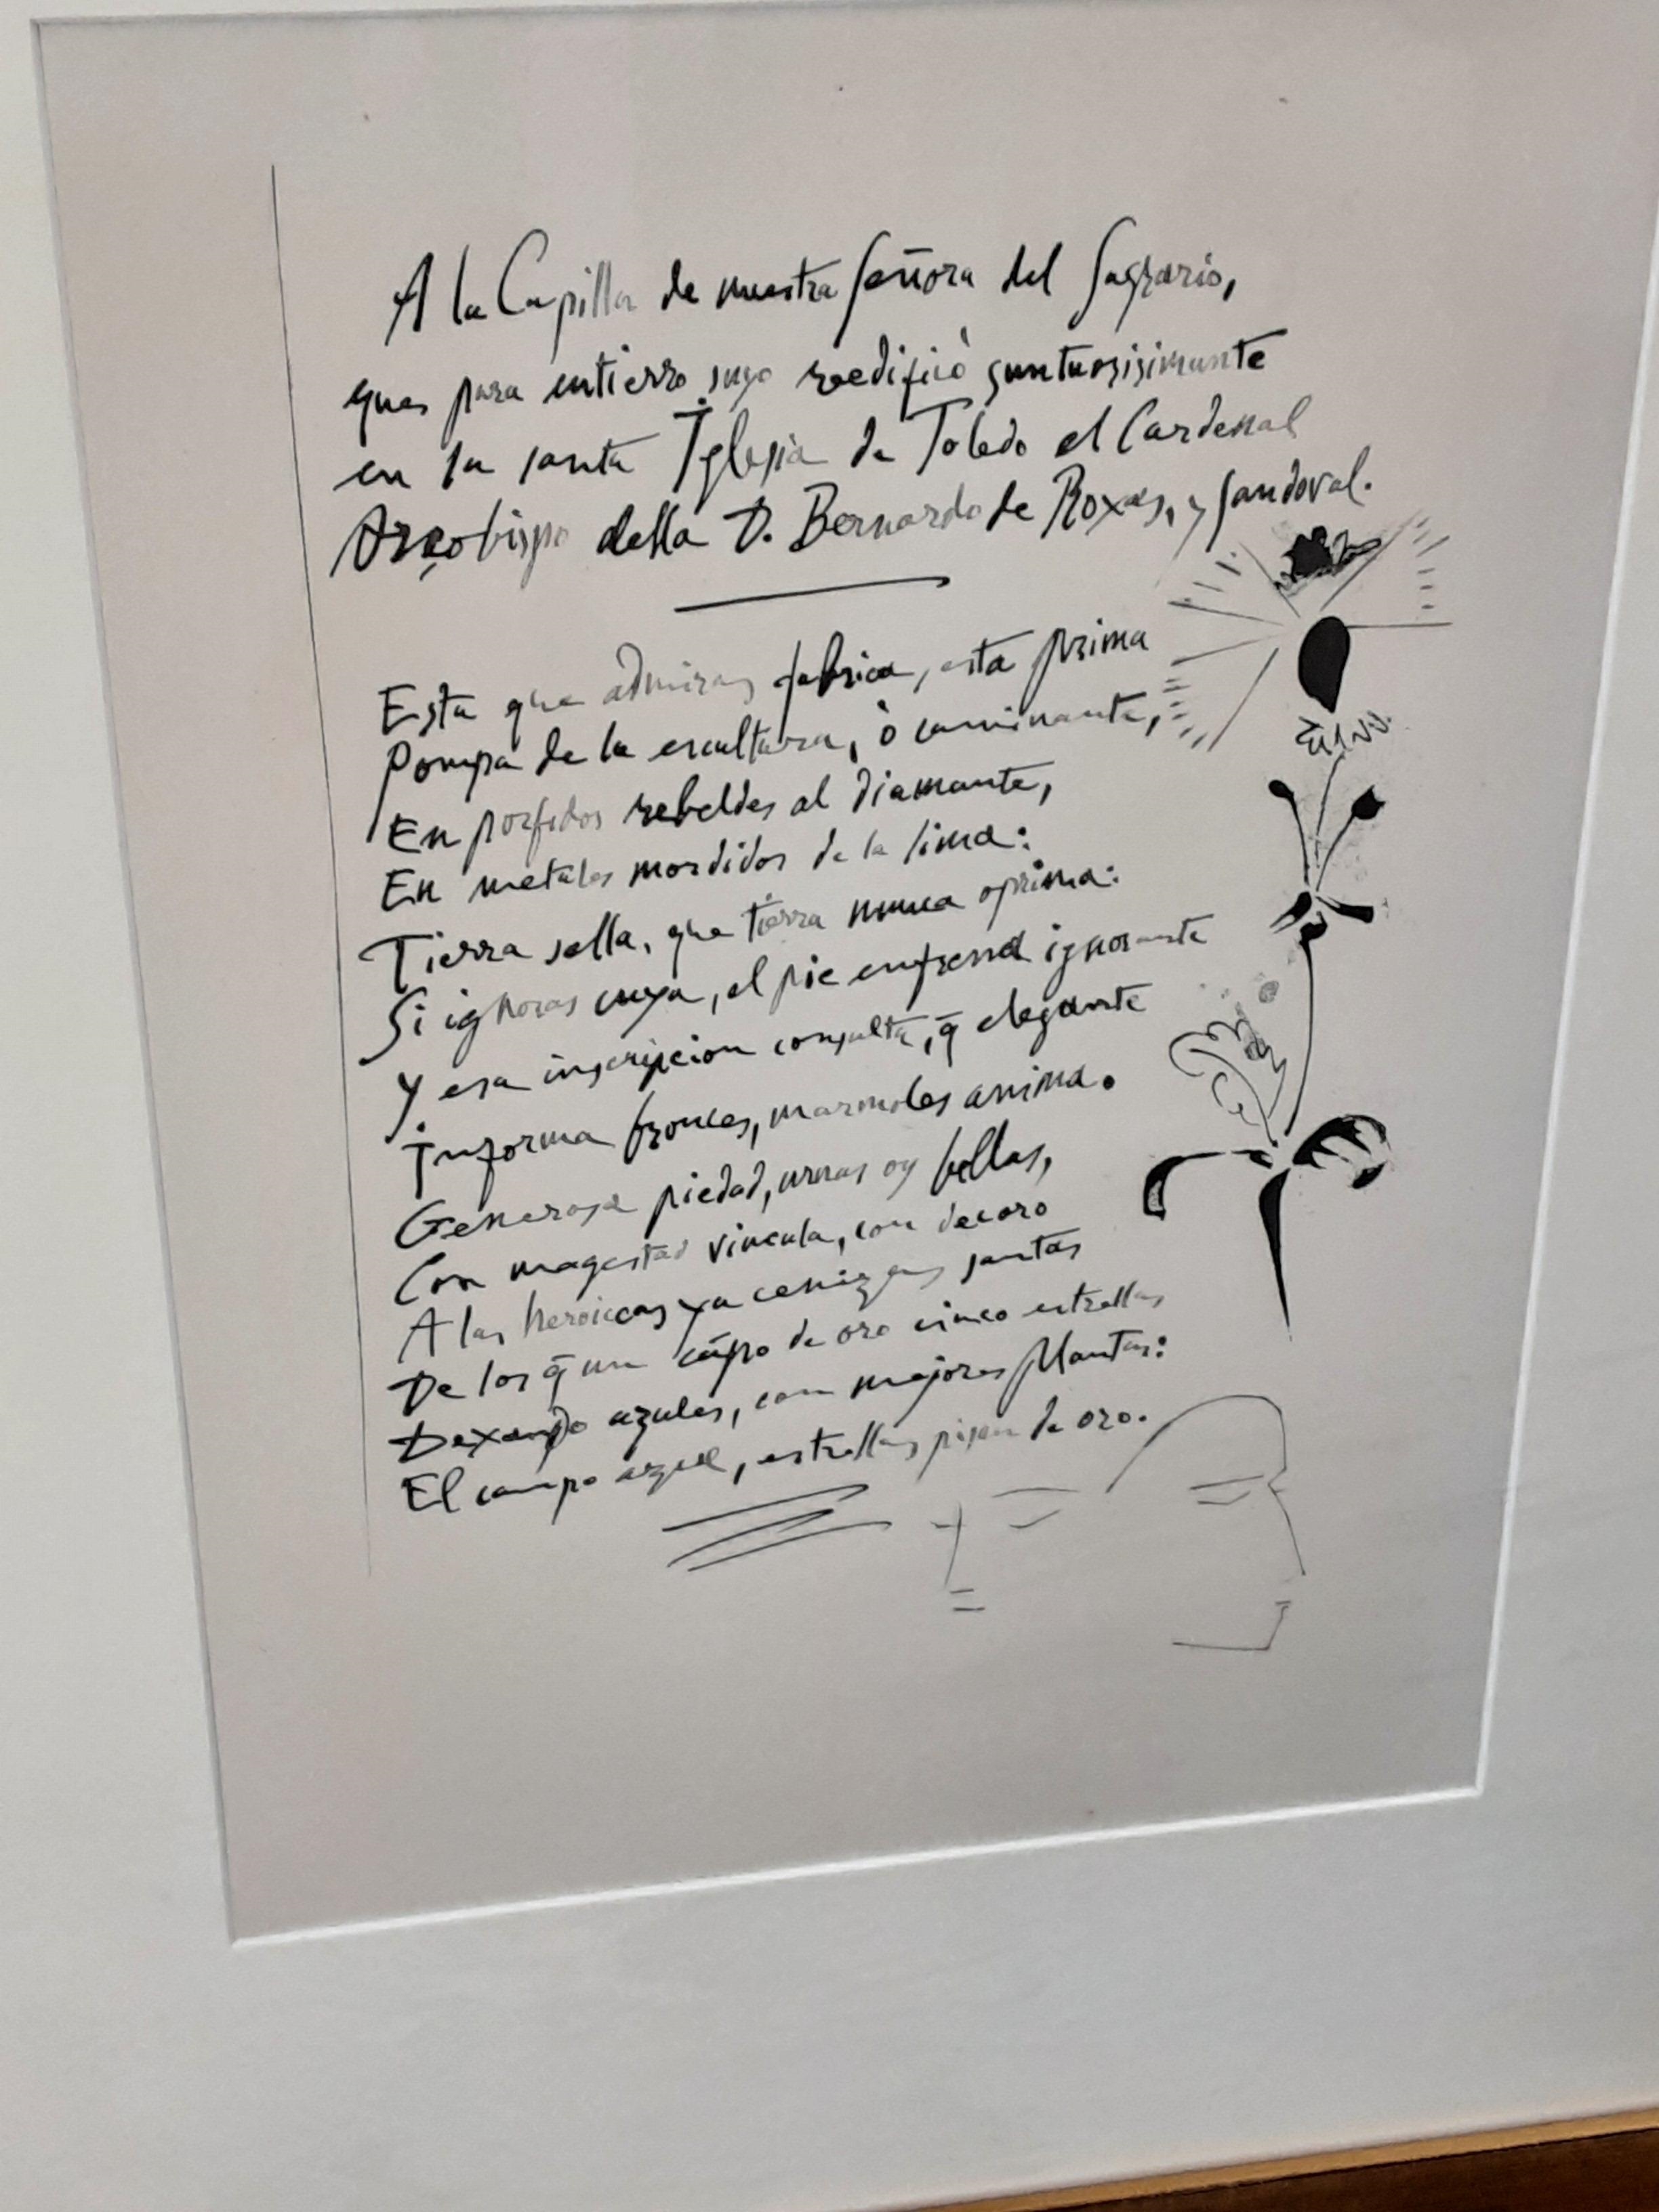 A la Capilla de nuestra Señora del Sagrario,
que para entierro suyo reedificò suntuosisimante
en la santa Iglesia de Toledo el Cardenal
Arçobispo della D. Bernardo de Roxas, y Sandoval.
Esta que admiras fabrica, esta prima
Pompa de la escultura, ò caminante,
En porfidos rebeldes al diamante,
En metales mordidos de la lima:
Tierra sella, que tierra nunca oprima:
Si ignoras cuya, el pie enfrena ignorante
Y esa inscripcion consulta, q̄ elegante
Informa bronces, marmoles anima.
Generosa piedad, urnas oy bellas,
Con magestad vincula, con decoro
A las heroicas ya cenizas santas
De los q̄ un cāpo de oro cinco estrellas
Dexando azules, con mejores Plantas:
El campo azul, estrellas pisan de oro.